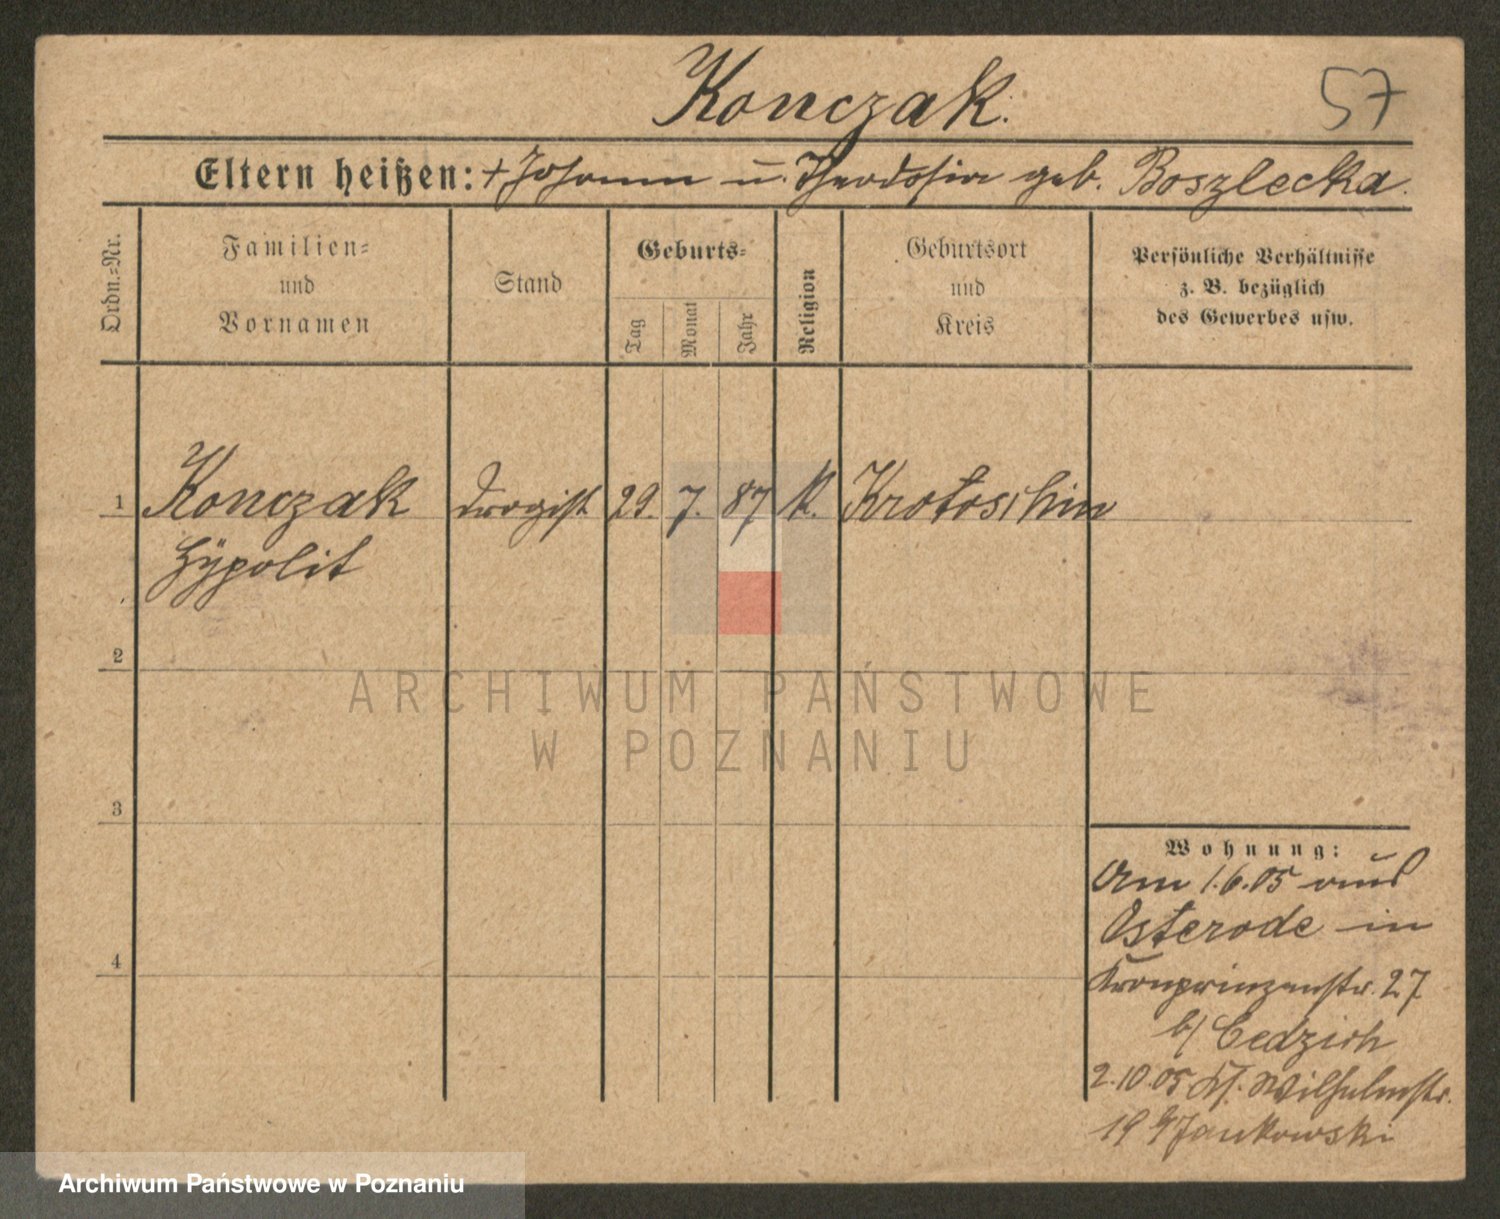 Konczak.
57
Eltern heißen: + Johann u. Theodosia geb. Boszlecka.
Ordn.=Nr.
Familien=
und
Vornamen
Stand
Geburts=
Tag
Monat
Jahr
Religion
Geburtsort
und
Kreis
Persönliche Verhältnisse
z. B. bezüglich
des Gewerbes usw.
1 Konczak Drogist 29. 7. 87 k. Krotoschin
Hÿpolit
2
3
4
Wohnung:
Am 1.6.05 aus
Osterode in
Kronprinzenstr. 27
b/ Cedzich
2.10.05 Kl. Wilhelmstr.
19 b/ Jankowski
ARCHIWUM PAŃSTWOWE
W POZNANIU
Archiwum Państwowe w Poznaniu